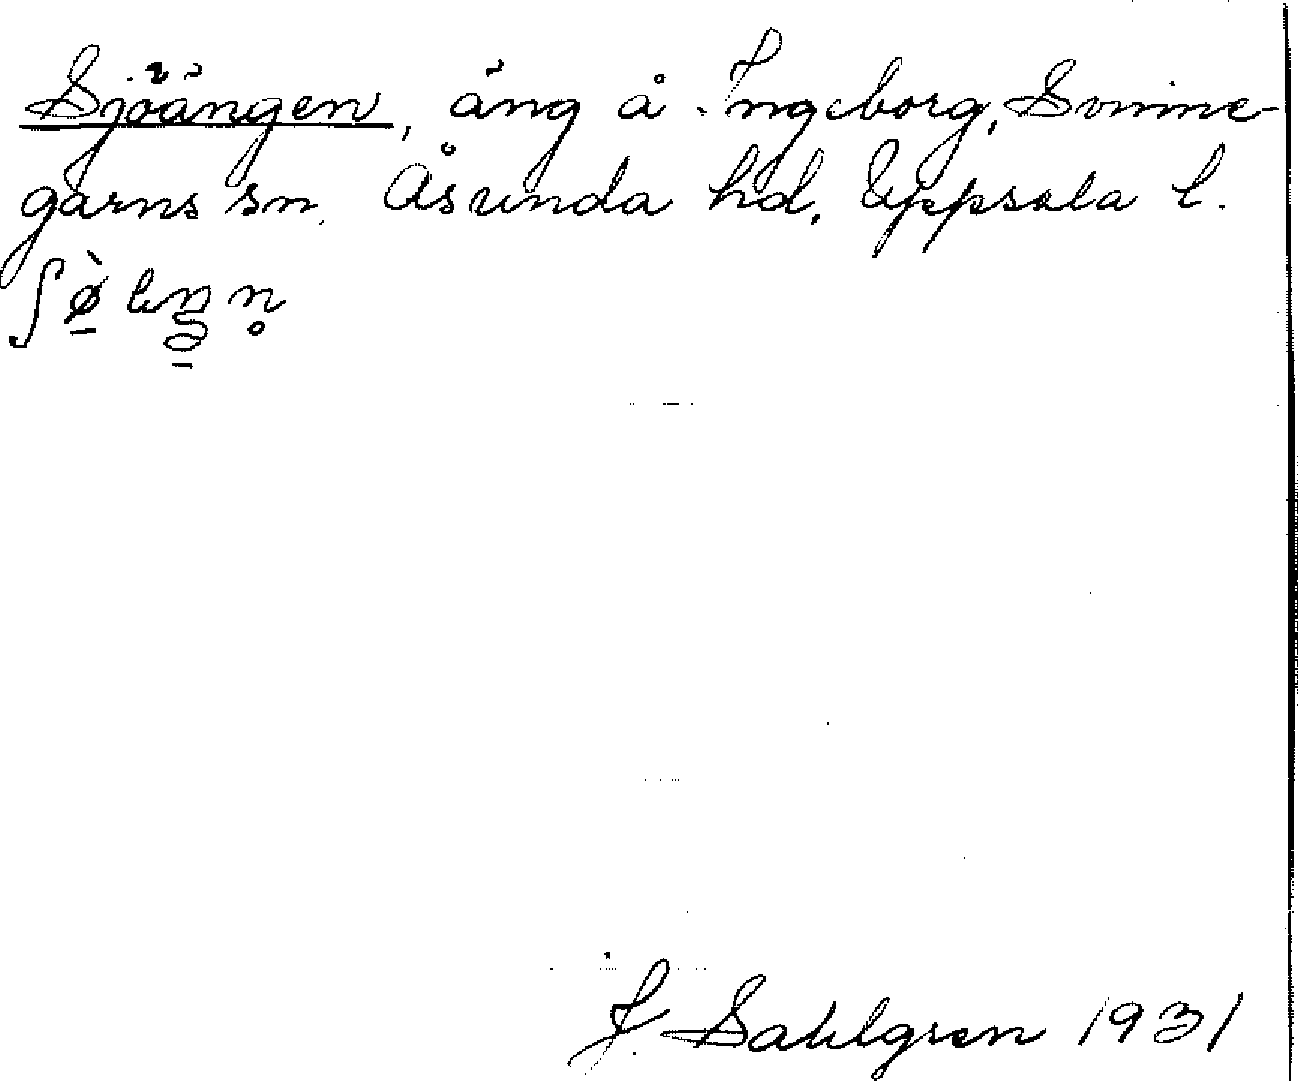 Sjöängen, äng å Ingeborg, Svinne-
garns sn, Åsunda hd, Uppsala l.
J. Sahlgren 1931